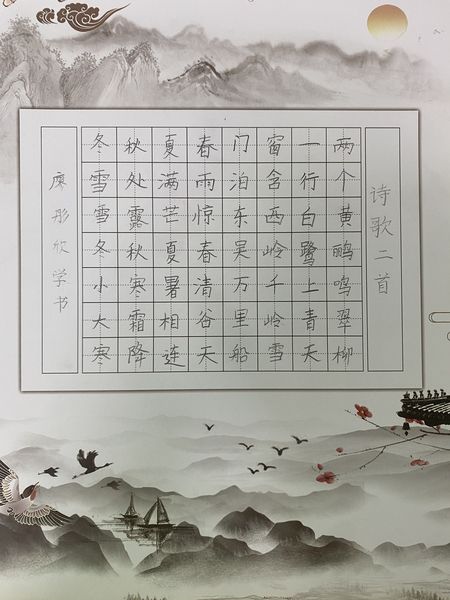 诗歌二首
两个黄鹂鸣翠柳
一行白鹭上青天
窗含西岭千岭雪
门泊东吴万里船
春雨惊春清谷天
夏满芒夏暑相连
秋处露秋寒霜降
冬雪雪冬小大寒
廖彤欣学书